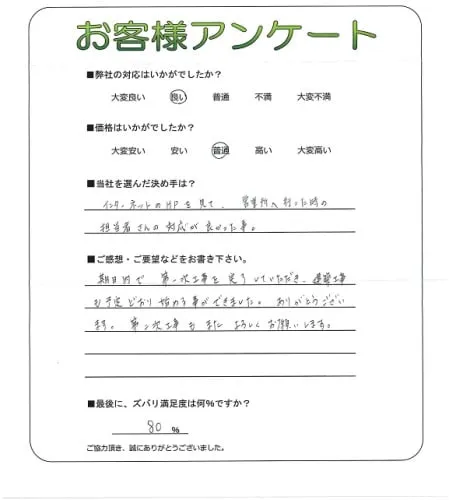 お客様アンケート
■弊社の対応はいかがでしたか？
大変良い 良い 普通 不満 大変不満
■価格はいかがでしたか？
大変安い 安い 普通 高い 大変高い
■当社を選んだ決め手は？
インターネットのHPを見て、営業所へ行った時の
担当者さんの対応が良かった事。
■ご感想・ご要望などをお書き下さい。
期日内で第一次工事を完了していただき、建築工事
も予定どおり始める事ができました。ありがとうござい
ます。第二次工事もまたよろしくお願いします。
■最後に、ズバリ満足度は何％ですか？
80 ％
ご協力頂き、誠にありがとうございました。